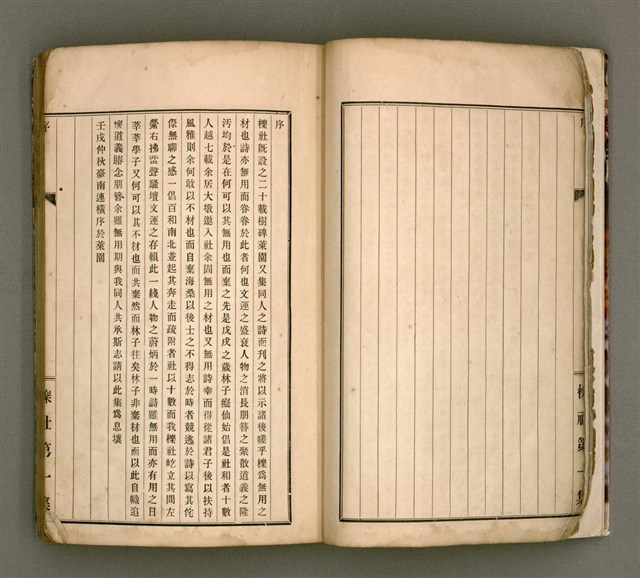 序
櫟社既設之二十載樹碑萊園又集同人之詩而刊之將以示諸後嗟乎櫟爲無用之
材也詩亦無用而眷眷於此者何也文運之盛衰人物之消長朋簪之聚散道義之隆
汚均於是在何可以其無用也而棄之先是戊戌之歲林子癡仙始倡是社和者十數
人越七載余居大墩邀入社余固無用之材也又無用詩幸而得從諸君子後以扶持
風雅則余何敢以不材也而自棄海桑以後士之不得志於時者競逃於詩以寫其侘
傺無聊之感一倡百和南北並起其奔走而疏附者社以十數而我櫟社屹立其間左
縈右拂蜚聲騷壇文運之存賴此一綫人物之蔚炳於一時詩雖無用而亦有用之日
莘莘學子又何可以其不材也而共棄然而林子往矣林子非棄材也而以此自輓追
懷道義睠念朋簪余雖無用期與我同人共承斯志請以此集爲息壤
壬戌仲秋臺南連橫序於萊園
序
櫟社第一集
序
櫟社第一集